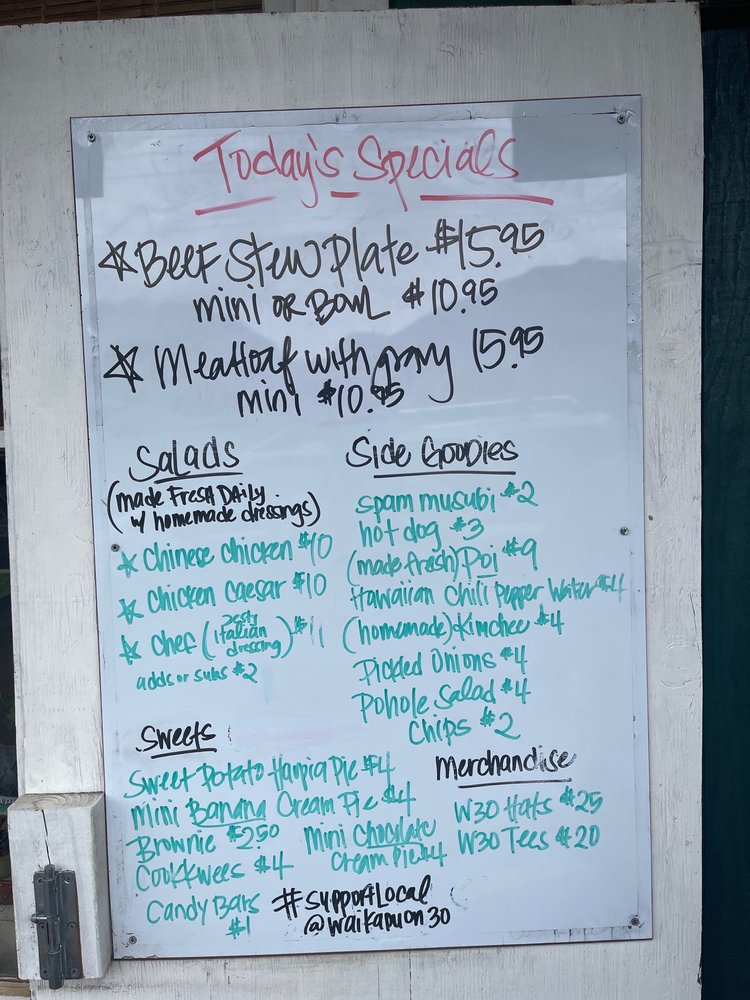 Today's Specials
☆ Beef Stew Plate $15.95
mini or Bowl $10.95
☆ Meatloaf with gravy 15.95
mini $10.95
Salads
(made Fresh Daily
w/ homemade dressings)
☆ Chinese chicken $10
☆ Chicken caesar $10
☆ Chef (zesty Italian dressing) $11
adds or subs $2
Side Goodies
spam musubi $2
hot dog $3
(made fresh) Poi $9
Hawaiian Chili Pepper Water $4
(homemade) Kimchee $4
Pickled Onions $4
Pohole Salad $4
Chips $2
Sweets
Sweet Potato Haupia Pie $4
Mini Banana Cream Pie $4
Brownie $2.50
Mini Chocolate
Cream Pie $4
Cookkwees $4
Candy Bars
$1
Merchandise
W30 Hats $25
W30 Tees $20
#supportLocal
@waikapuon30